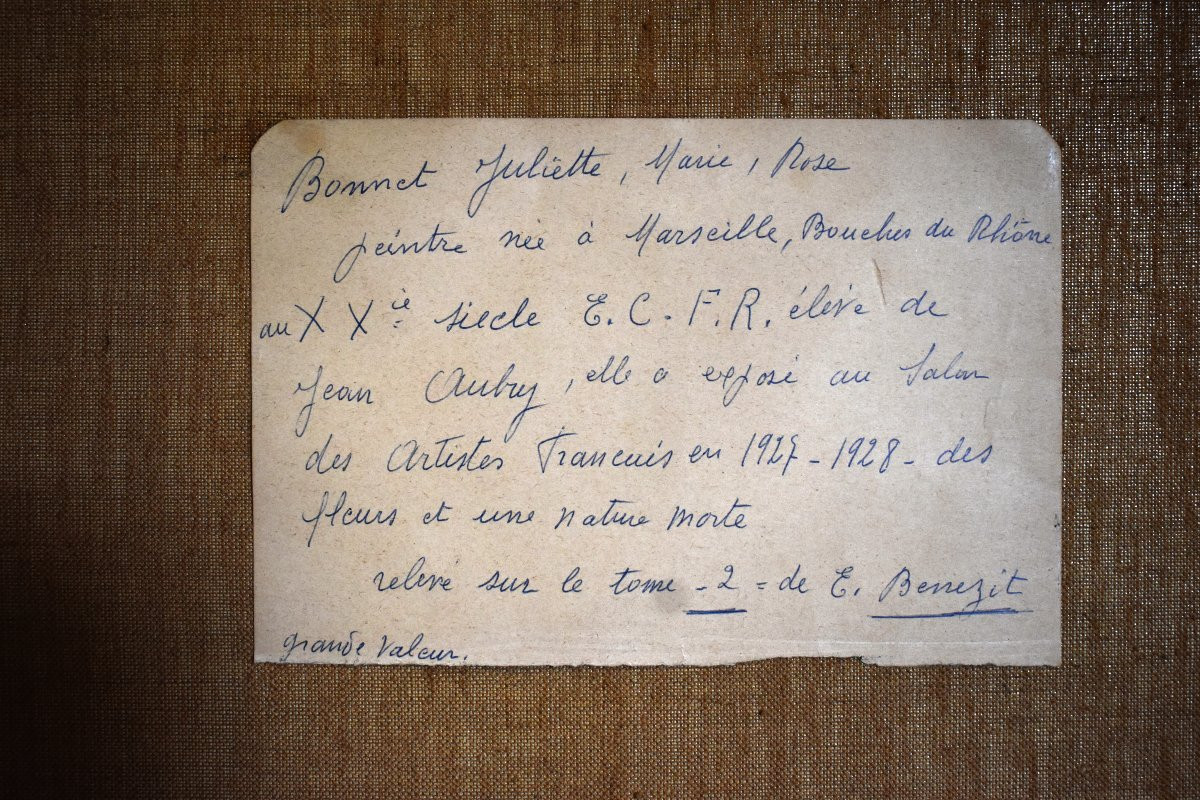 Bonnet Juliëtte, Marie, Rose
peintre née à Marseille, Bouches du Rhône
au XXie siecle E.C.F.R. élève de
Jean Aubry, elle a exposé au Salon
des Artistes Francais en 1927-1928- des
fleurs et une nature morte
relevé sur le tome -2 = de E. Benezit
grande valeur.